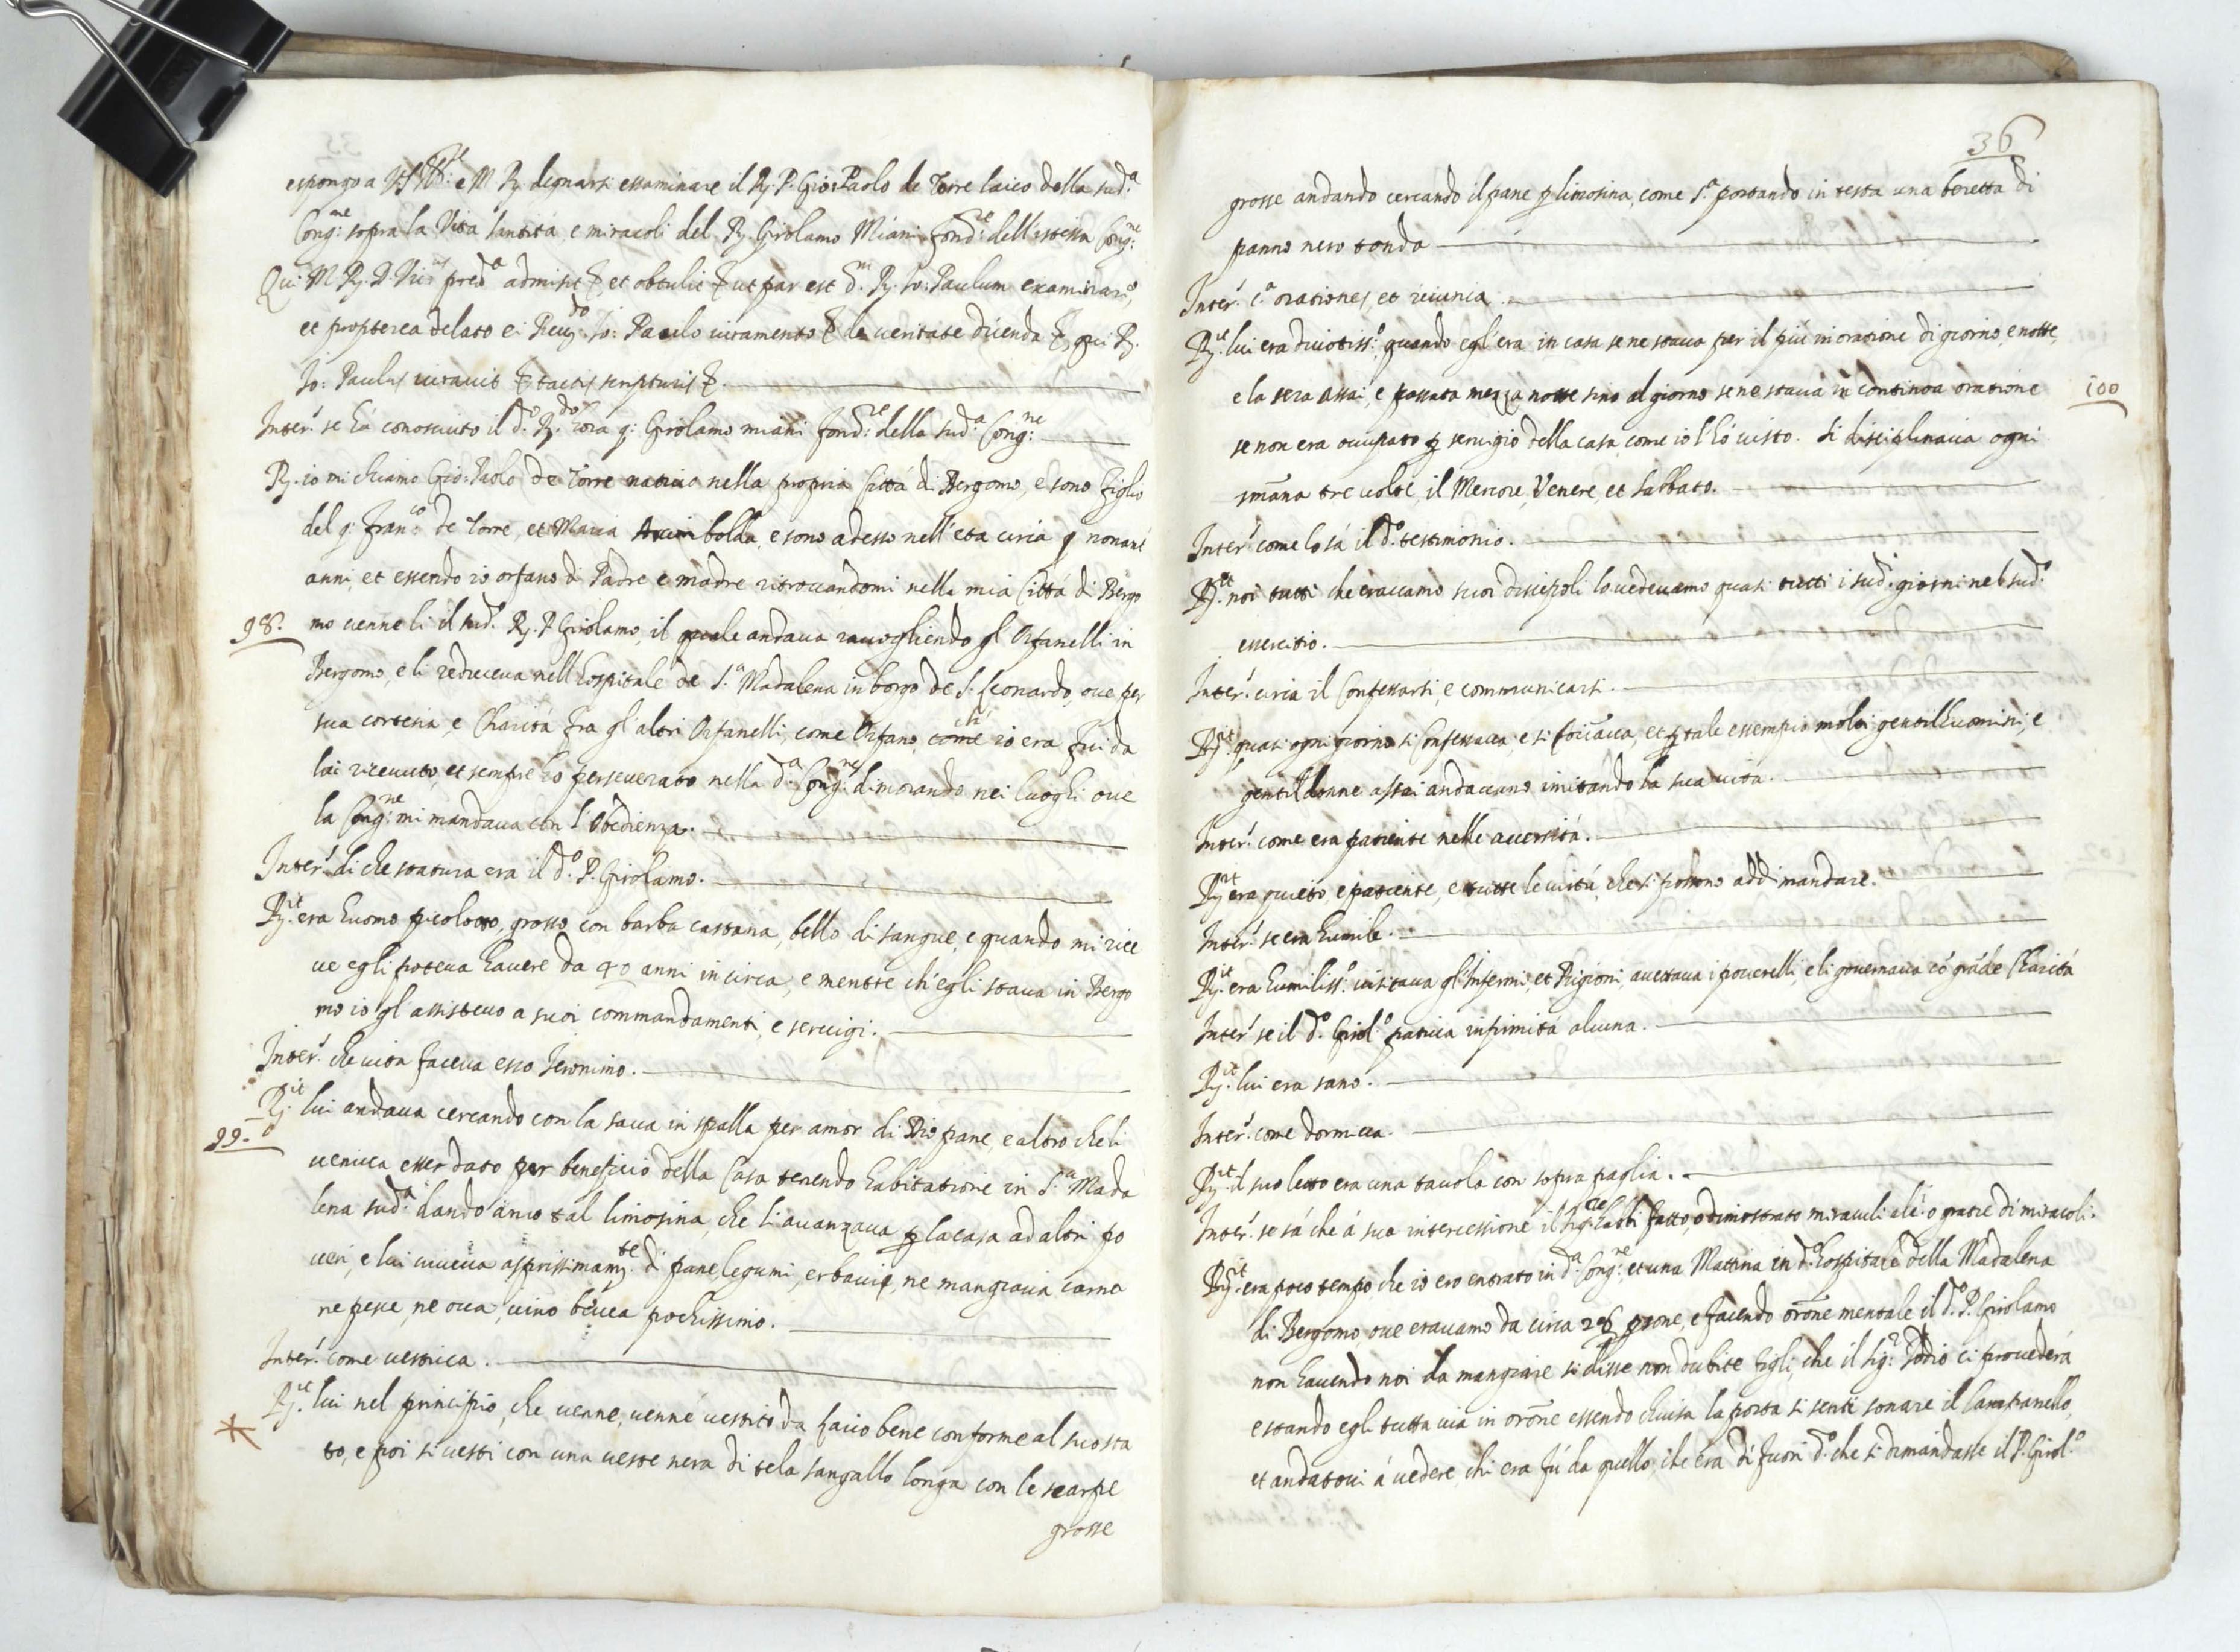 espongo a V.S. Ill.re e M. R. dignarsi essaminare il R. P. Gio: Paolo de Torre laico della sud.a
Cong.ne sopra la Vita santità, e miracoli del R. Girolamo Miani fond.re dell'istessa Cong.ne
Qui M. R. D. Vic.us pred.a admisit et obtulit ut par est d.m R. Io: Paulum examinari,
et propterea delato ei Reu.do Io: Paulo iuramento de veritate dicenda, qui R.
Io: Paulus iuravit tactis scripturis
Inter.t se hà conosciuto il d.o R.do hora q: Girolamo miani fond.re della sud.a Cong.ne
R. io mi chiamo Gio: Paolo de Torre nativo nella propria Città di Bergomo, e sono figlio
del q: Fran.co de Torre, et Maria bolda, e sono adesso nell'età circa p nonant
anni, et essendo io orfano di Padre e madre ritrovandomi nella mia Città di Bergo
98. mo venne li il sud.o R. P. Girolamo, il quale andava raccogliendo gl'Orfanelli in
Bergomo, e li reduceva nell'hospitale de S.a Madalena in borgo de S. Leonardo, ove per
sua cortesia, e Charità fra gl'altri Orfanelli, come Orfano, come ch'io era fui da
lui ricevuto, et sempre hò perseverato nella d.a Cong.ne dimorando nei luoghi ove
la Cong.ne mi mandava con l'Obedienza.
Inter.t di che statura era il d.o P. Girolamo.
R.it era huomo picolotto, grosso, con barba castana, bello di sangue, e quando mi rice
ve egli poteva havere da 40 anni in circa, e mentre ch'egli stava in Bergo
mo io gl'assistevo a suoi commandamenti, e servigi.
Inter.t che vita faceva esso Ieronimo.
R.it lui andava cercando con la sacca in spalla per amor di Dio pane, e altro che li
99. veniva esser dato per beneficio della Casa tenendo habitatione in S.a Mada
lena sud.a dando anco tal limosina, che li avanzava p la casa ad altri po
veri, e lui viveva asprissimam.te di pane, legumi, erbacie, ne mangiava carne
ne pesse, ne ova, vino beveva pochissimo.
Inter.t come vestiva.
R.it lui nel principio, che venne, venne vestito da laico bene conforme al suo sta
* to, e poi si vesti con una veste nera di tela sangallo longa con le scarpe
grosse
36
grosse andando cercando il pane p limosina, come s.a portando in testa una beretta di
panno nero tonda
Inter.t c.a orationes, et ieiunia.
R.it lui era divotiss.o, quando egl'era in casa se ne stava per il più in oratione di giorno, e notte,
e la sera assai, e passata mezza notte sino al giorno se ne stava in continoa oratione 100
se non era occupato p servigio della casa come io l'hò visto. Si disciplinava ogni
smana tre volte, il Mercore, Venere, et Sabbato.
Inter.t come lo sà il d.o testimonio.
R.it noi tutti che eravamo suoi discepoli lo vedevamo quasi tutti i sud.i giorni nel sud.o
essercitio.
Inter.t circa il Confessarsi, e communicarsi.
R.it quasi ogni giorno si Confessava, e si coicava, et p tale essempio molti gentilhuomini, e
gentildonne assai andavano imitando la sua vita.
Inter.t come era patiente nelle aversità.
R.it era quieto, e patiente, e tutte le virtù, che si possono addimandare.
Inter.t se era humile.
R.it era humiliss.o visitava gl'Infermi, et Prigioni, avettava i poverelli, e li governava cō grāde Charità
Inter.t se il d.o Girol.o pativa infirmità alcuna.
R.it lui era sano.
Inter.t come dormiva.
R.it il suo letto era una tavola con sopra paglia.
Inter.t se sà che à sua intercessione il Sig.re habbi fatto, o dimostrato miraculi alc.o o gratie di miracoli.
R.it era poco tempo che io ero entrato in d.a Cong.ne et una Mattina in d.o hospitale della Madalena
di Bergomo, ove eravamo da circa 28 psone, e facendo orōne mentale il d.o P. Girolamo
non havendo noi da mangiare si disse non dubite figli, che il Sig.r Iddio ci provederà
e stando egli tutta via in orōne essendo chiusa la porta si senti sonare il Campanello,
et andatovi à vedere chi era fù da quello, che era di fuori d.o che si dimandasse il P. Girol.o